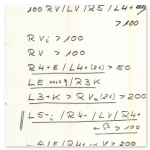 100 RV/LV/R5/L4+
>100
RVi > 100
RV > 100
R4+E/L4+(2x) > 50
LE /R3K
L3+K > RVa(2x) > 200
L5-i/R4-/LV/R4+
> 100
> 200